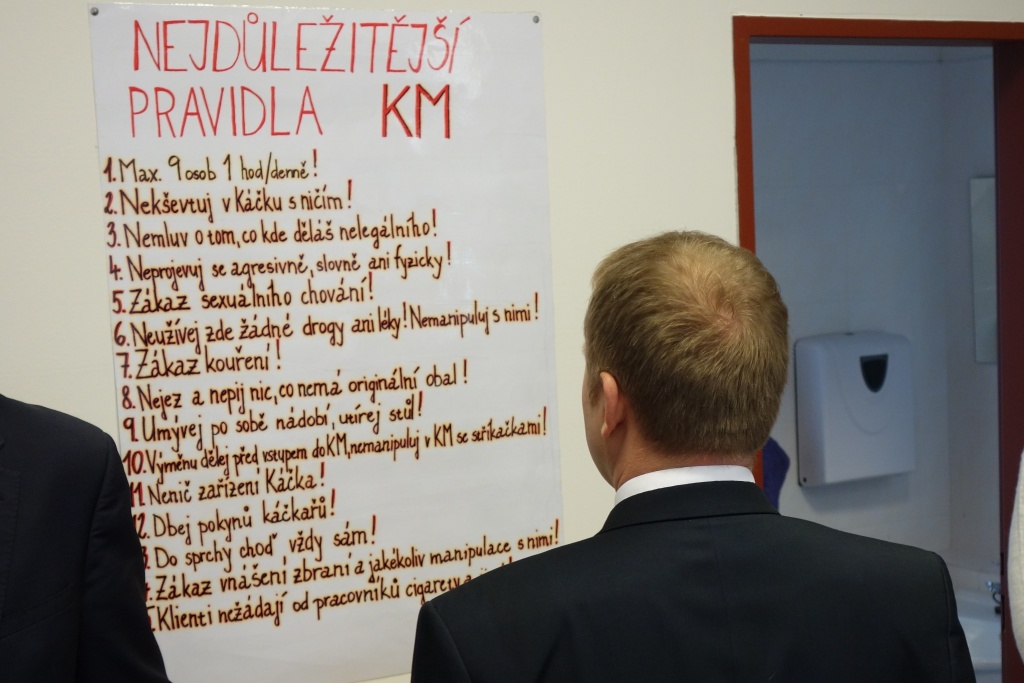 NEJDŮLEŽITĚJŠÍ
PRAVIDLA KM
1. Max. 9 osob 1 hod/denně!
2. Nekšeftuj v Káčku s ničím!
3. Nemluv o tom, co kde děláš nelegálního!
4. Neprojevuj se agresivně, slovně ani fyzicky!
5. Zákaz sexuálního chování!
6. Neužívej zde žádné drogy ani léky! Nemanipuluj s nimi!
7. Zákaz kouření!
8. Nejez a nepij nic, co nemá originální obal!
9. Umývej po sobě nádobí, utírej stůl!
10. Výměnu dělej před vstupem do KM, nemanipuluj v KM se stříkačkami!
11. Nenič zařízení Káčka!
12. Dbej pokynů káčkařů!
3. Do sprchy choď vždy sám!
Zákaz vnášení zbraní a jakékoliv manipulace s nimi!
Klienti nežádají od pracovníků cigarety a